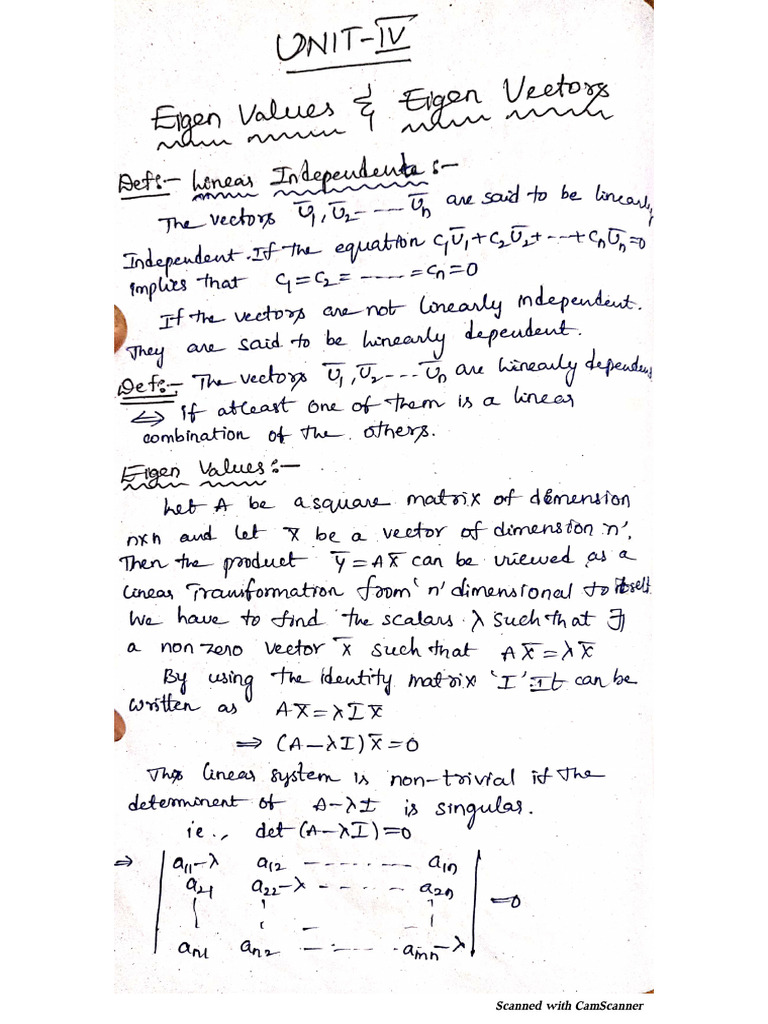 UNIT-IV
Eigen Values & Eigen Vectors
Def:- Linear Independente:-
The vectors U̅₁, U̅₂ - - - - U̅n are said to be linearly
Independent. If the equation C₁U̅₁+C₂U̅₂+ - - - +CnU̅n=0
implies that C₁=C₂= - - - - - =Cn=0
If the vectors are not linearly independent.
They are said to be linearly dependent.
Def:- The vectors U̅₁, U̅₂ - - - U̅n are linearly dependent
⇔ if atleast one of them is a linear
combination of the others.
Eigen Values:-
Let A be a square matrix of dimension
n×n and let X̅ be a vector of dimension 'n'.
Then the product Y̅=AX̅ can be viewed as a
linear Transformation from 'n' dimensional to itself
We have to find the scalars λ such that ∃
a non zero vector X̅ such that AX̅=λX̅
By using the identity matrix 'I' It can be
written as AX̅=λIX̅
⇒ (A-λI)X̅=0
This linear system is non-trivial if the
determinent of A-λI is singular.
ie., det(A-λI)=0
⇒ | a₁₁-λ a₁₂ - - - - - - - a₁n |
| a₂₁ a₂₂-λ - - - - - a₂n | =0
| an₁ an₂ - - - - - - amn-λ |
Scanned with CamScanner